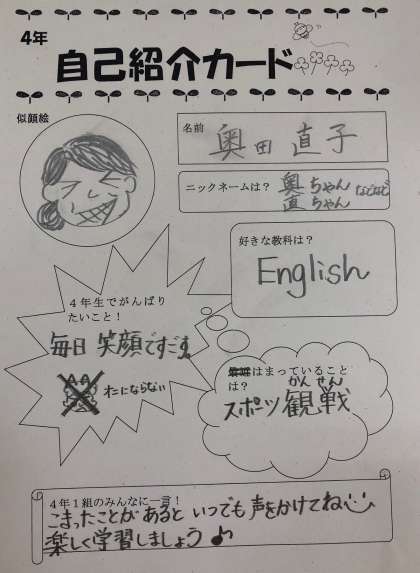 4年
自己紹介カード
似顔絵
名前
奥田 直子
ニックネームは？
奥ちゃん などなど
直ちゃん
好きな教科は？
English
４年生でがんばり
たいこと！
毎日 笑顔ですごす
オニにならない
はまっていること
は？
かんせん
スポーツ観戦
４年１組のみんなに一言！
こまったことがあると いつでも 声をかけてね
楽しく学習しましょう♪